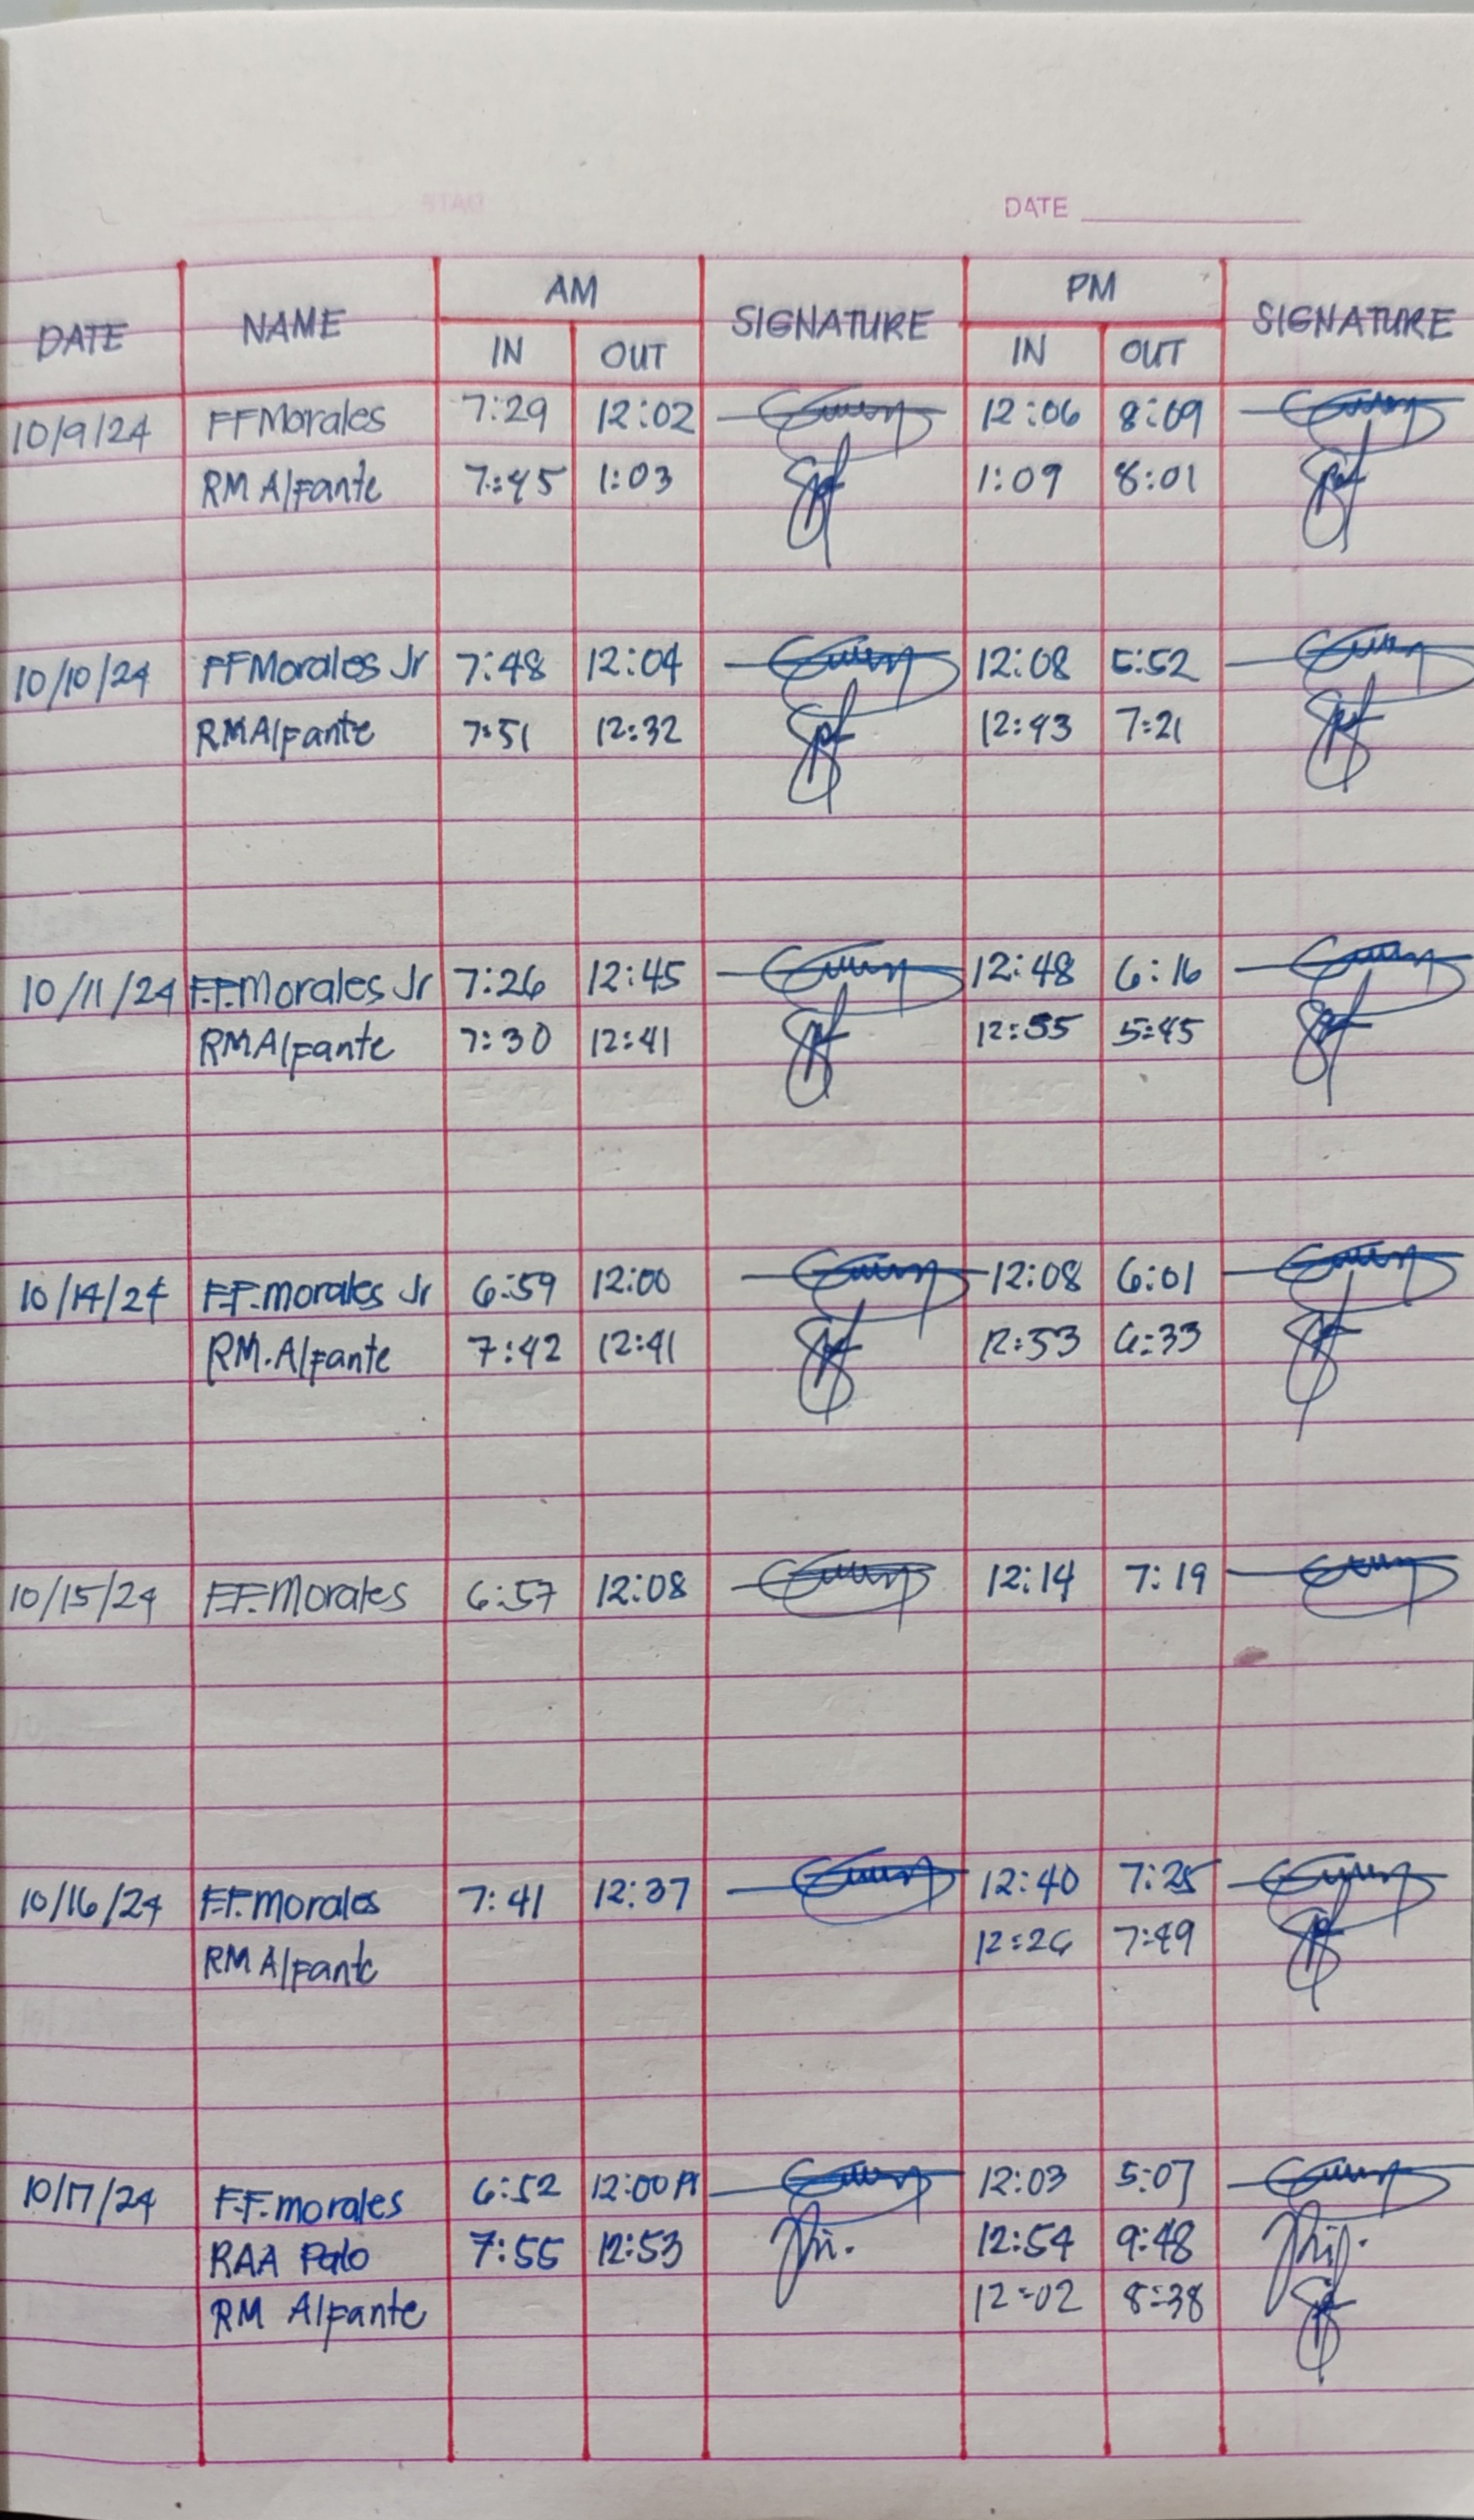 DATE
DATE NAME AM SIGNATURE PM SIGNATURE
IN OUT IN OUT
10/9/24 FFMorales 7:29 12:02 12:06 8:09
RM Alfante 7:45 1:03 1:09 8:01
10/10/24 FFMorales Jr 7:48 12:04 12:08 5:52
RMAlfante 7:51 12:32 12:43 7:21
10/11/24 F.F.Morales Jr 7:26 12:45 12:48 6:16
RMAlfante 7:30 12:41 12:55 5:45
10/14/24 F.F.morales Jr 6:59 12:00 12:08 6:01
RM.Alfante 7:42 12:41 12:53 6:33
10/15/24 F.F.Morales 6:57 12:08 12:14 7:19
10/16/24 F.F.morales 7:41 12:37 12:40 7:25
RM Alfante 12:26 7:49
10/17/24 F.F.morales 6:52 12:00 12:03 5:07
RAA Palo 7:55 12:53 12:54 9:48
RM Alfante 12:02 8:38